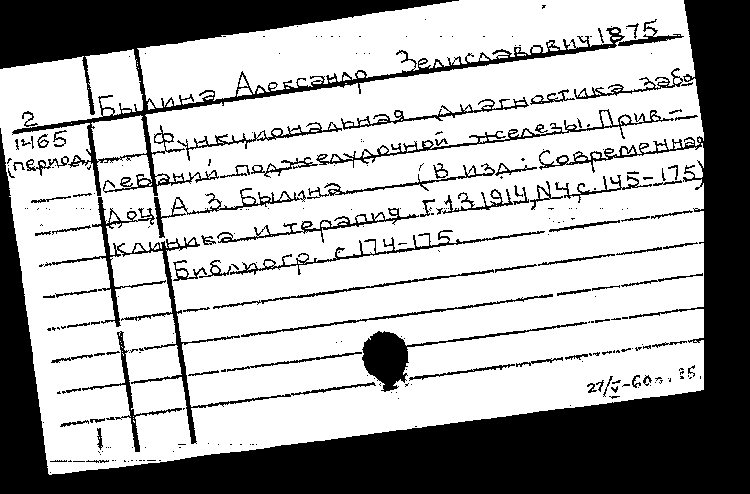 Былина, Александр Зелиславович 1875
2
1465
(период.)
Функциональная диагностика забо
леваний поджелудочной железы. Прив.-
доц. А. З. Былина (В изд.: Современная
клиника и терапия. Г. 13 1914, N4, с. 145-175)
Библиогр. с. 174-175.
27/V-60г.